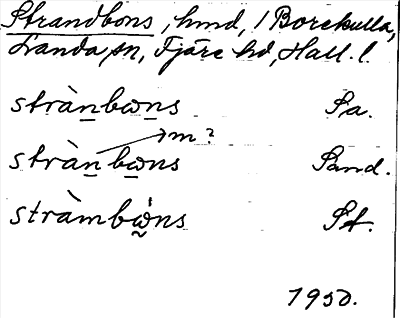 Strandbons, hmd, / Borekulla,
Landa sn, Fjäre hd, Hall. l.
stràn̲bω̲ns Sa.
→ m?
stràn̲bω̲ns Sand.
stràmbὼ̰ns Sf.
1950.